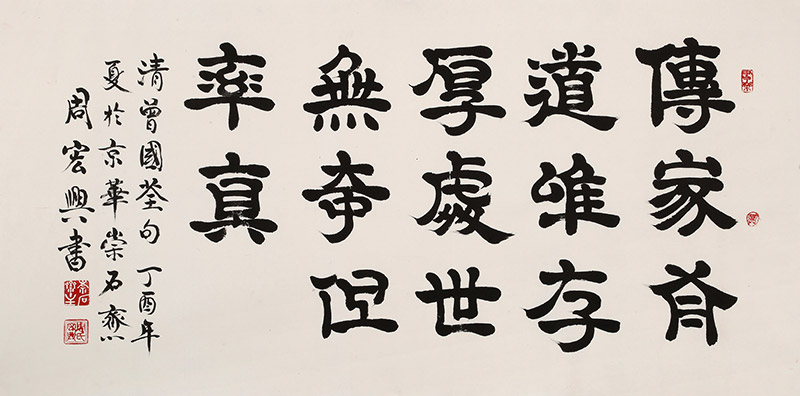 傳家有
道唯存
厚處世
無奇但
率真
清曾國荃句 丁酉年
夏於京華崇石齋
周宏興書